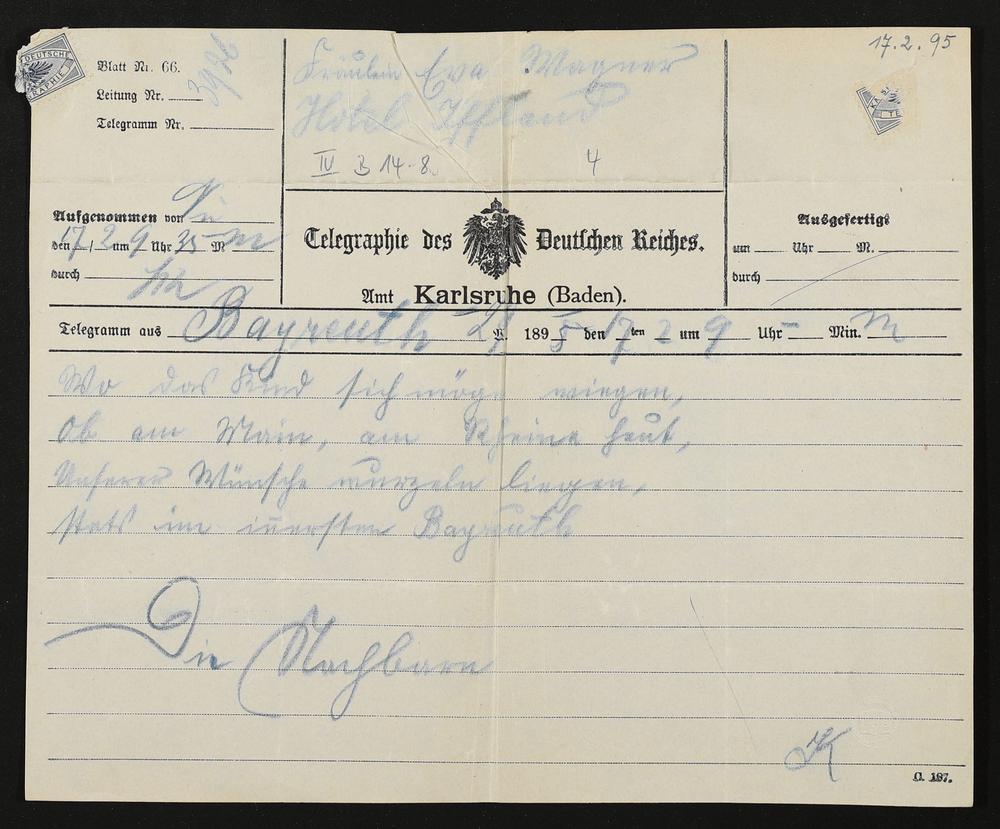 17. 2. 95
DEUTSCHE
GRAPHIE
Blatt Nr. 66.
Leitung Nr.
Telegramm Nr.
Fräulein Eva Wagner
Hotel Iffland
IV B 14-8. 4
KA
TE
Aufgenommen von
den 17/2 um 9 Uhr 35 M m
durch
Telegraphie des Deutschen Reiches.
Amt Karlsruhe (Baden).
Ausgefertigt
um Uhr M.
durch
Telegramm aus Bayreuth 29 W. 1895 den 17ten 2 um 9 Uhr - Min. m
Wo das Kind sich möge wiegen,
Ob am Main, am Rheine heut,
Unserer Wünsche wurzeln liegen,
stets im iñersten Bayreuth
Die Nachbarn
K
C. 187.